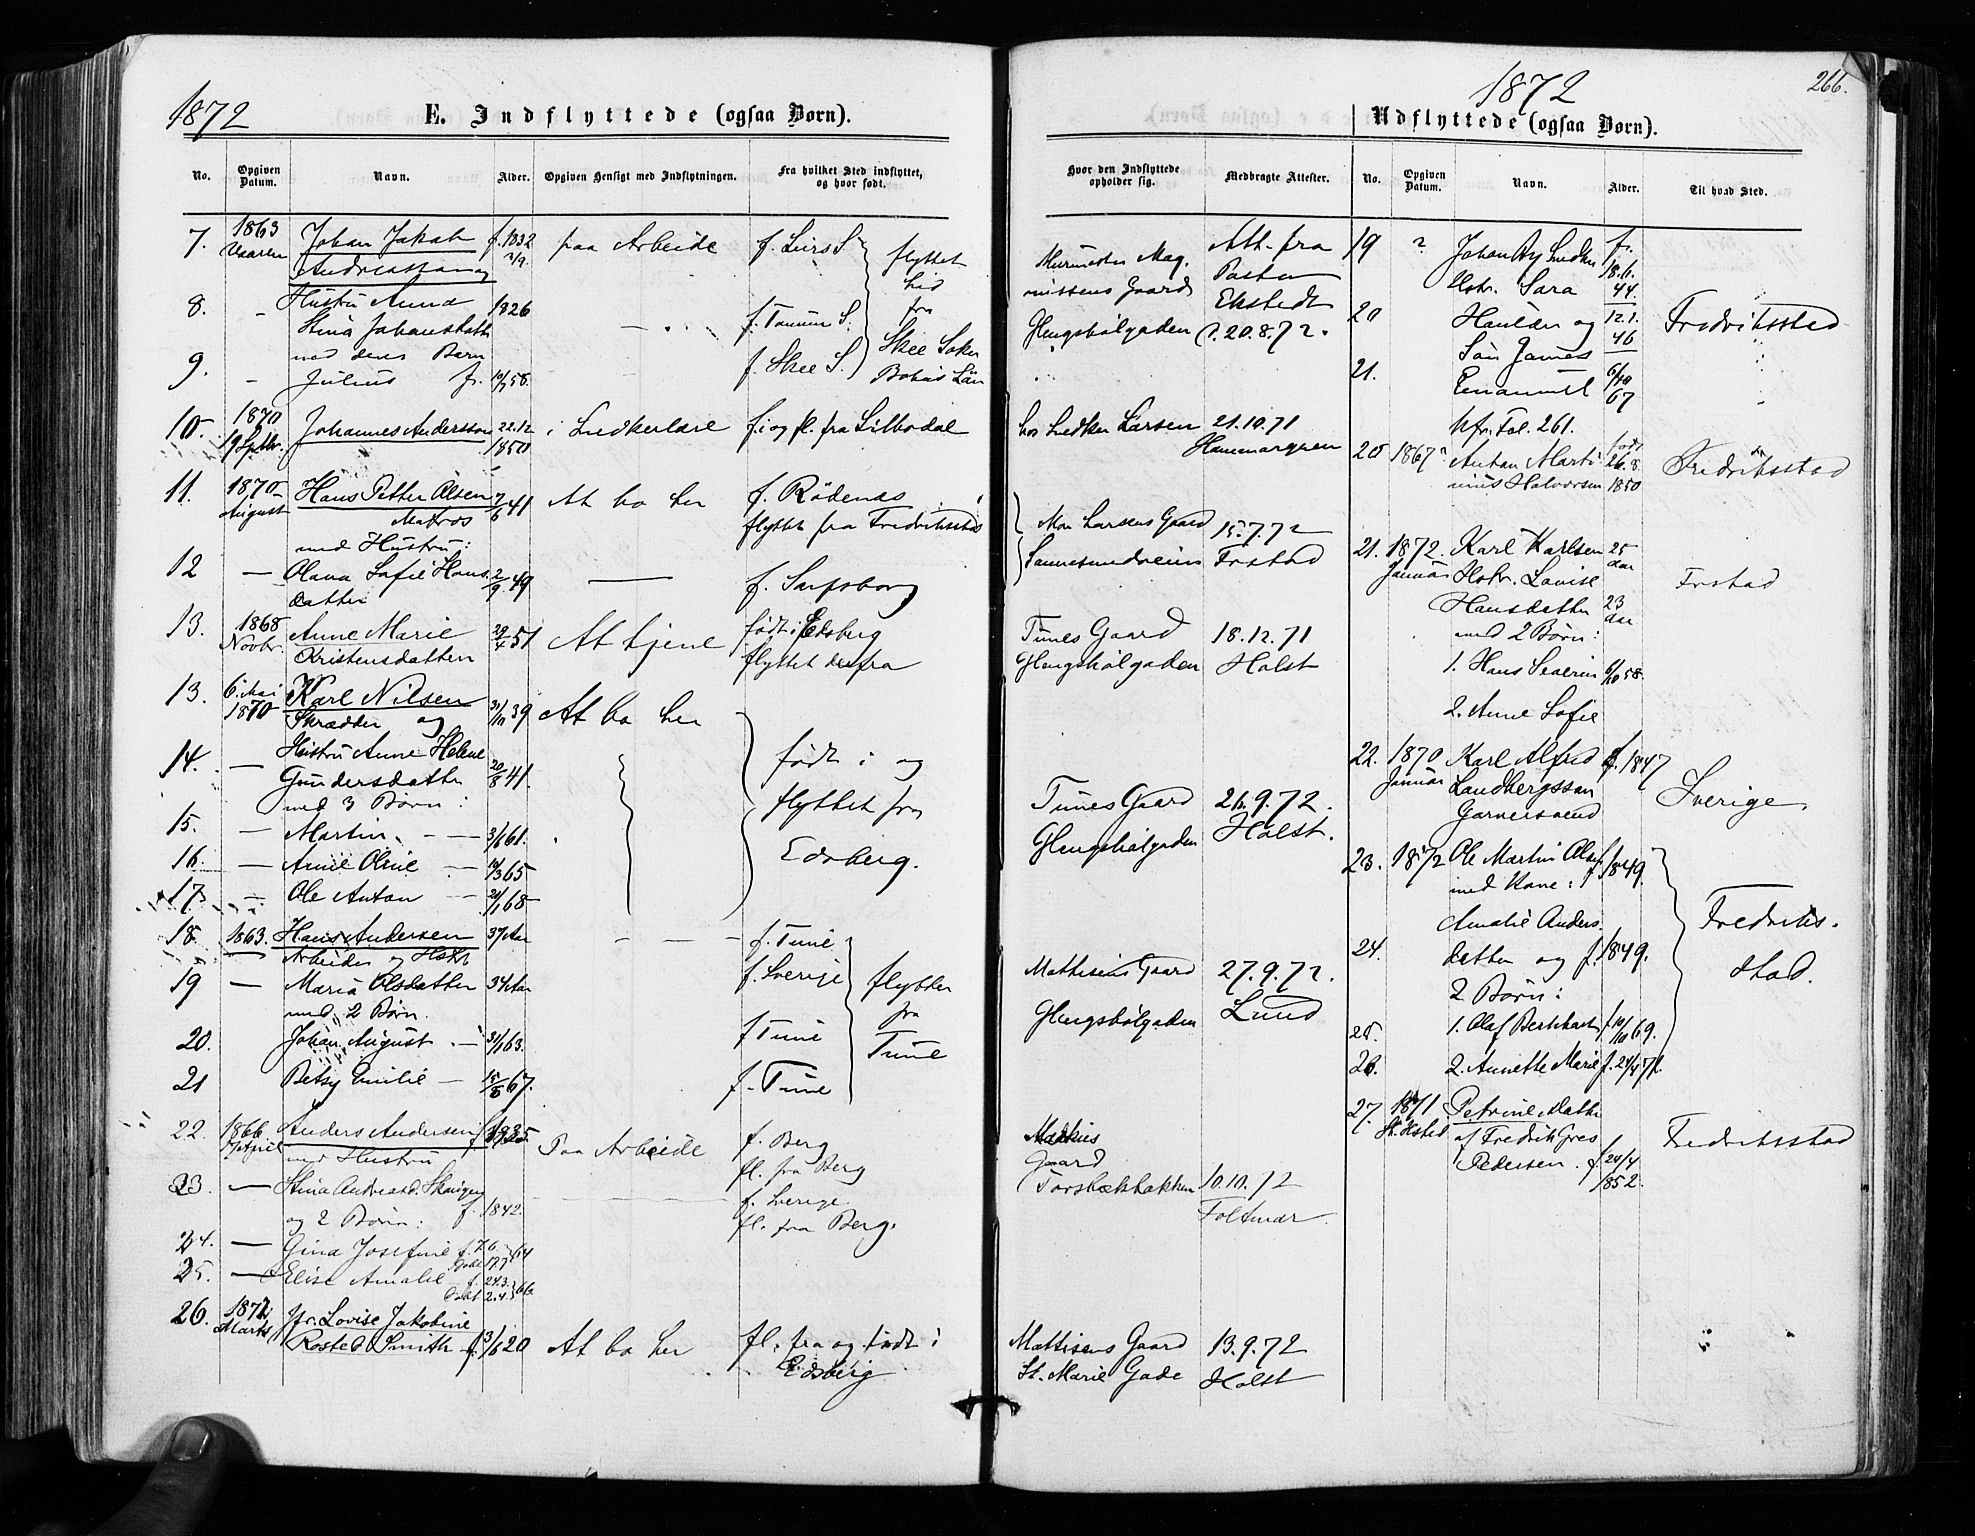 1872
E. Indflyttede (ogsaa Børn).
No. Opgiven Datum. Navn. Alder. Opgiven Hensigt med Indflytningen. Fra hvilket Sted indflyttet, og hvor født.
7. 1863 Vaaren Johan Jakob f. 1832 paa Arbeide f. Lurs S. flyttet
Andreassen og hid
8. - Hustru Anna 1826 f. Tanum S. fra
Stina Johansdatter Skee Sokn
9. - med deres Barn f. Skee S. Bohus Län
Julius f. 10/7 58.
10. 1870 19 Septbr. Johannes Anderssen 22.12 1850 i Snedkerlære f. i og fl. fra Silbodal
11. 1870 August Hans Petter Olsen 7/6 41 At bo her f. Rödenæs
Matros flyttet fra Fredrikstad
med Hustru:
12 — Olava Sofie Hans 2/9 49 — f. Sarpsborg
datter
13. 1868 Novbr. Anne Marie 29/4 51 At tjene født i Edsberg
Kristensdatter flyttet derfra
13. 6. Mai 1870 Karl Nilsen 31/10 39 At bo her
Skrædder og
14. — Hustru Anne Helene født i og
Gundersdatter 20/8 41. flyttet fra
med 3 Børn:
15. — Martin 3/6 61. Edsberg.
16. — Anne Oline 10/3 65
17. - Ole Anton 20/1 68
18. 1863. Hans Andersen 37 Aar - - - f. Tune
Arbeider og Hstr.
19 — Maria Olsdatter 34 Aar f. Sverige flyttet
med 2 Børn. fra
20. Johan August 31/1 63. f Tune Tune
21 Betsy Emilie — 15/5 67. f. Tune
22. 1866 April Anders Andersen f. 1835. Paa Arbeide f. Berg
med Hustru fl. fra Berg
23. — Stina Andreasd. f. 1842. f. Sverige
og 2 Børn: fl. fra Berg.
24. — Gina Josefine f. 7.6. 64
Døbt 17.7
25. — Elise Amalie f. 24.3. 66
Døbt 2.4.
26. 1872 Marts Jfr. Lovise Jakobine
Rosted Smith f. 13/6 20 At bo her fl. fra og født i
Edsberg
1872 266.
Udflyttede (ogsaa Børn).
Hvor den Indflyttede opholder sig. Medbragte Attester. No. Opgiven Datum. Navn. Alder. Til hvad Sted.
Murmester Mag. Att. fra 19 ? Johan Snedker f.
nussens Gaard Pastor Hstr. Sara 18.6. 44.
Glengshølgaden Ekstedt 20 Haulder og 12.1. 46 Fredrikstad
20.8.72. Søn James
21. Emanuel 6/10 67
hos Snedker Larsen 21.10.71 Fol. 261.
20 1867 Anton Marti født 26.8. 1850 Fredriksstad
nius Halvorsen
Larsens Gaard 15.7.72
Sannesundveien Frstad 21. 1872. Januar Karl Karlsen 25 Aar
Hstr. Lovise Frstad
Hansdatter 23 Aar
Tunes Gaard 18.12.71 med 2 Børn:
Glengshølgaden Holst 1. Hans Severin 6/10 58.
2. Anne Sofie
22. 1870 Januar Karl Alfred f. 1847 Sverige.
Tunes Gaard 26.9.72. Landbergsson
Glengshølgaden Holst. Garversvend
23. 1872 Ole Martin Olsen f. 1849.
med Kone:
Amalie Anders Fredrik-
24. datter og f. 1849. stad.
Mattisens Gaard 27.9.72. 2 Børn:
Glengshølgaden Lund 25. 1. Olaf f. 10/10 69.
26. 2. Annette Marie f. 24/4 71.
27. 1871 Petrine
Gaard af Fredrik Pedersen. f. 24/4 1852. Fredriksstad
Torsbekbakken 10.10.72
Foltmar.
Mattisens Gaard 13.9.72
St. Marie Gade Holst